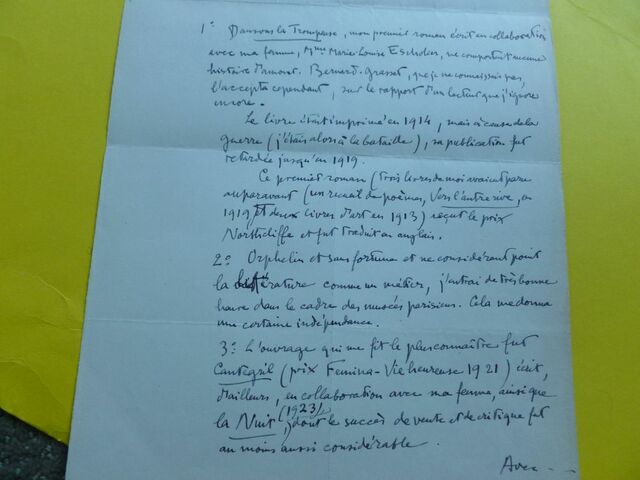 1° Dansons la Trompeuse, mon premier roman écrit en collaboration
avec ma femme, Mme Marie-Louise Escholier, ne comportait aucune
histoire d'amour. Bernard Grasset, que je ne connaissais pas,
l'accepta cependant, sur le rapport d'un lecteur que j'ignore
encore.
Le livre était imprimé en 1914, mais à cause de la
guerre (j'étais alors à la bataille), sa publication fut
retardée jusqu'en 1919.
Ce premier roman (trois livres de moi avaient paru
auparavant (un recueil de poèmes, Vers l'autre rive, en
et deux livres d'art en 1913) reçut le prix
Northcliffe et fut traduit en anglais.
2° Orphelin et sans fortune et ne considérant point
la littérature comme un métier, j'entrai de très bonne
heure dans le cadre des musées parisiens. Cela me donna
une certaine indépendance.
3° L'ouvrage qui me fit le plus connaître fut
Cantegril (prix Femina-Vie heureuse 1921) écrit,
d'ailleurs, en collaboration avec ma femme, ainsi que
la Nuit (1923), dont le succès de vente et de critique fut
au moins aussi considérable.
Avec